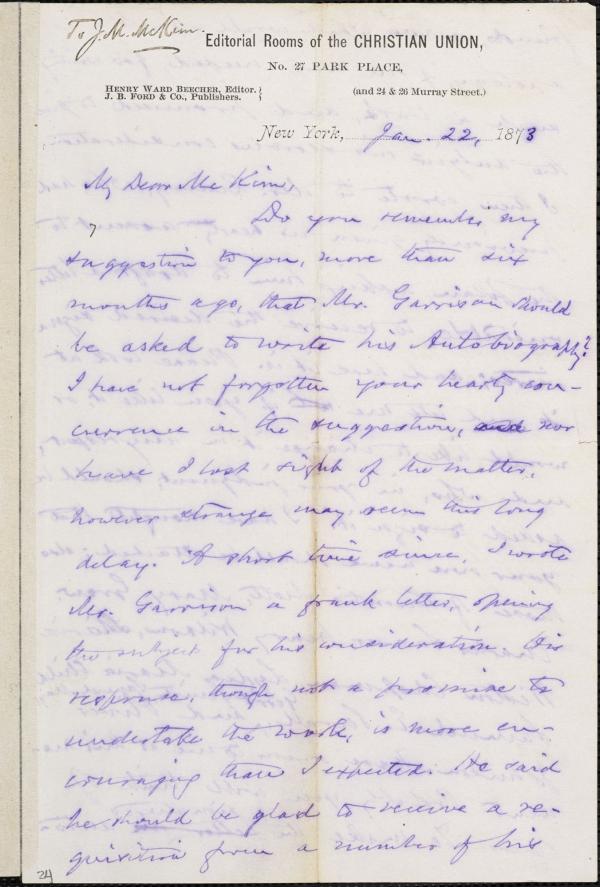 To J. M. McKim.
Editorial Rooms of the CHRISTIAN UNION,
No. 27 PARK PLACE,
HENRY WARD BEECHER, Editor. }
J. B. FORD & CO., Publishers. }
(and 24 & 26 Murray Street.)
New York, Jan. 22, 1873
My Dear McKim,
Do you remember my
suggestion to you, more than six
months ago, that Mr. Garrison should
be asked to write his Autobiography?
I have not forgotten your hearty con-
currence in the suggestion, and nor
have I lost sight of the matter,
however strange may seem this long
delay. A short time since, I wrote
Mr. Garrison a frank letter, opening
the subject for his consideration. His
response, though not a promise to
undertake the work, is more en-
couraging than I expected. He said
he should be glad to receive a re-
quisition from a number of his
24